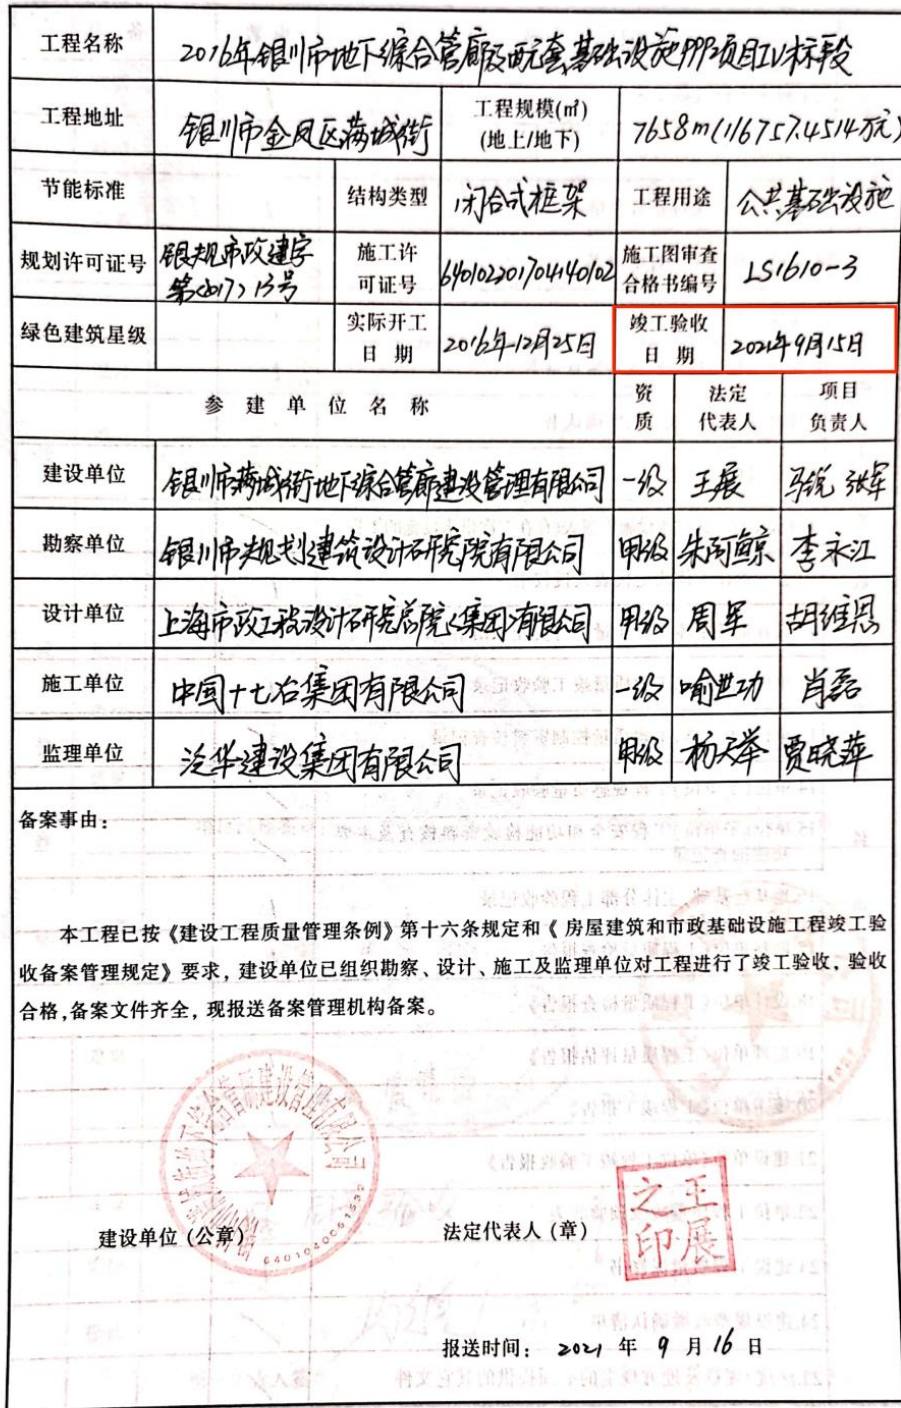 工程名称 2016年银川市地下综合管廊及配套基础设施PPP项目IV标段
工程地址 银川市金凤区满城街 工程规模(㎡) 7658m(116757.4514万元)
(地上/地下)
节能标准 结构类型 闭合式框架 工程用途 公共基础设施
规划许可证号 银规市政建字 施工许 640102201704140102 施工图审查 LS1610-3
第(2017)13号 可证号 合格书编号
绿色建筑星级 实际开工 2016年12月25日 竣工验收 2021年9月15日
日期 日期
参建单位名称 资 法定 项目
质 代表人 负责人
建设单位 银川市满城街地下综合管廊建设管理有限公司 一级 王展 马锐 张军
勘察单位 银川市规划建筑设计研究院有限公司 甲级 朱阿鲸 李永江
设计单位 上海市政工程设计研究总院(集团)有限公司 甲级 周军 胡维恩
施工单位 中国十七冶集团有限公司 一级 喻世功 肖磊
监理单位 泛华建设集团有限公司 甲级 杨天举 贾晓萍
备案事由:
本工程已按《建设工程质量管理条例》第十六条规定和《房屋建筑和市政基础设施工程竣工验
收备案管理规定》要求,建设单位已组织勘察、设计、施工及监理单位对工程进行了竣工验收,验收
合格,备案文件齐全,现报送备案管理机构备案。
建设单位(公章) 法定代表人(章) 王展之印
6401040061532
报送时间: 2021 年 9 月 16 日